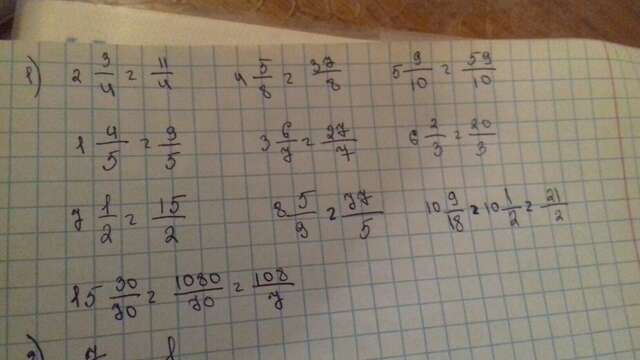 1) 2 3/4 = 11/4 4 5/8 = 37/8 5 9/10 = 59/10
1 4/5 = 9/5 3 6/7 = 27/7 6 2/3 = 20/3
7 1/2 = 15/2 8 5/9 = 77/5 10 9/18 = 10 1/2 = 21/2
15 30/70 = 1080/70 = 108/7